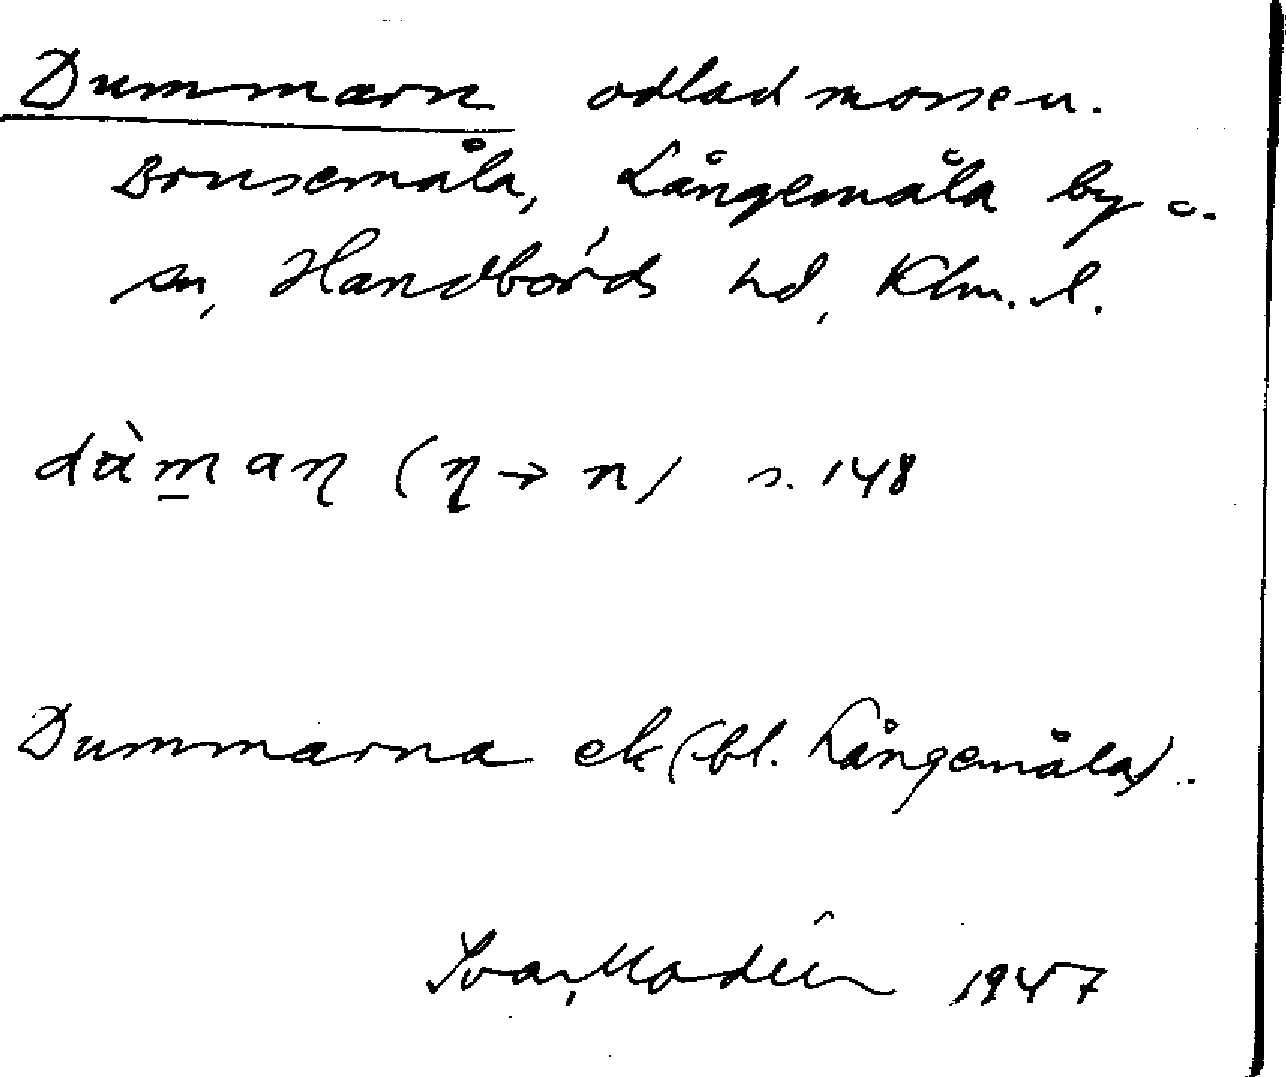 Dummarn odlad mosse u.
Brusemåla, Långemåla by o.
sn, Handbörds hd, Klm. l.
dùm̲aɳ (ɳ → n) s. 148
Dummarna ek (bl. Långemåla).
Ivar Modéer 1947